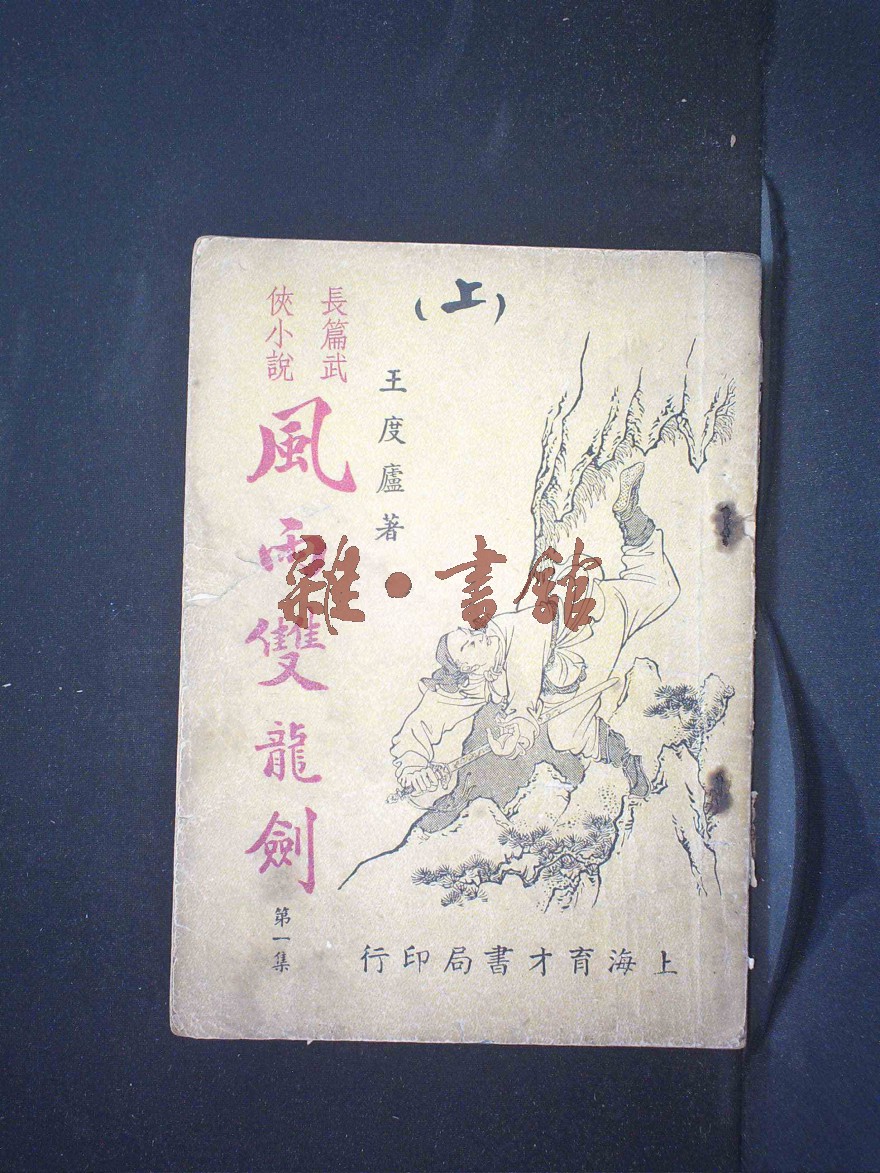 (上)
長篇武
俠小說
王度廬著
風雨雙龍劍
第一集
上海育才書局印行
雜·書館